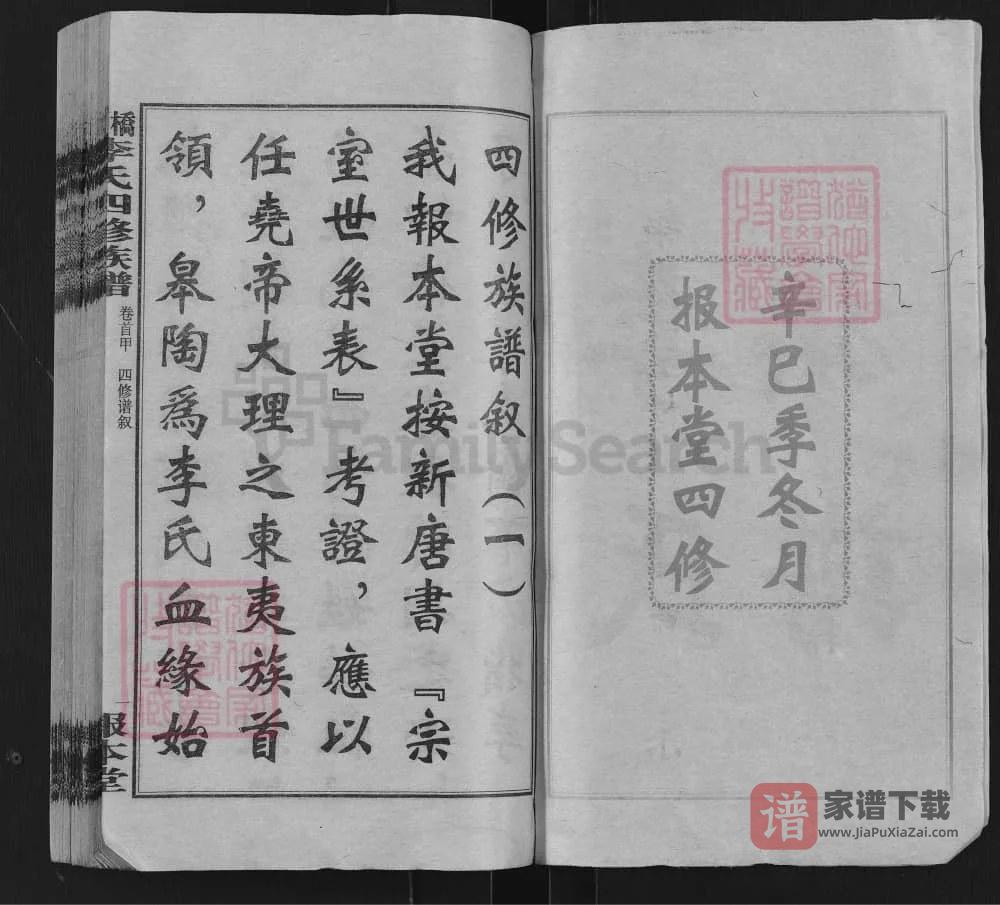 辛巳季冬月
报本堂四修
四修族譜叙（一）
我報本堂按新唐書『宗
室世系表』考證，應以
任堯帝大理之東夷族首
領，皋陶爲李氏血緣始
橋李氏四修族譜
卷首甲 四修谱叙
一
報本堂
FamilySearch
谱
家谱下载
www.JiaPuXiaZai.com